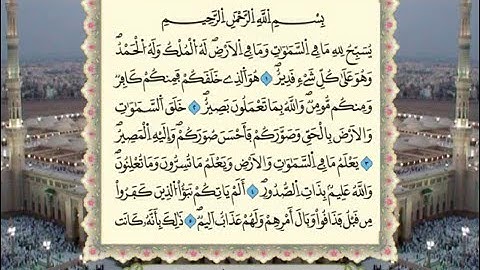 بِسْمِ اللَّهِ الرَّحْمَٰنِ الرَّحِيمِ
يُسَبِّحُ لِلَّهِ مَا فِي السَّمَٰوَٰتِ وَمَا فِي الْأَرْضِ ۖ لَهُ الْمُلْكُ وَلَهُ الْحَمْدُ ۖ
وَهُوَ عَلَىٰ كُلِّ شَيْءٍ قَدِيرٌ ﴿١﴾ هُوَ الَّذِي خَلَقَكُمْ فَمِنكُمْ كَافِرٌ
وَمِنكُم مُّؤْمِنٌ ۚ وَاللَّهُ بِمَا تَعْمَلُونَ بَصِيرٌ ﴿٢﴾ خَلَقَ السَّمَٰوَٰتِ
وَالْأَرْضَ بِالْحَقِّ وَصَوَّرَكُمْ فَأَحْسَنَ صُوَرَكُمْ ۖ وَإِلَيْهِ الْمَصِيرُ
﴿٣﴾ يَعْلَمُ مَا فِي السَّمَٰوَٰتِ وَالْأَرْضِ وَيَعْلَمُ مَا تُسِرُّونَ وَمَا تُعْلِنُونَ ۚ
وَاللَّهُ عَلِيمٌ بِذَاتِ الصُّدُورِ ﴿٤﴾ أَلَمْ يَأْتِكُمْ نَبَؤُا الَّذِينَ كَفَرُوا
مِن قَبْلُ فَذَاقُوا وَبَالَ أَمْرِهِمْ وَلَهُمْ عَذَابٌ أَلِيمٌ ﴿٥﴾ ذَٰلِكَ بِأَنَّهُ كَانَت